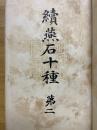 續燕石十種 第二